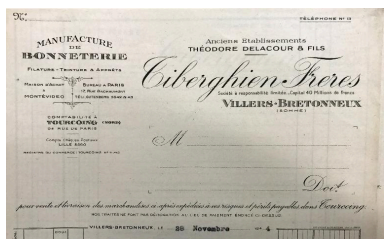 TÉLÉPHONE Nº 13
MANUFACTURE
DE
BONNETERIE
FILATURE - TEINTURE & APPRÊTS
MAISON D'ACHAT
MONTÉVIDÉO
BUREAU A PARIS
COMPTABILITÉ A
TOURCOING (NORD)
24 RUE DE PARIS
Compte Chèques Postaux
LILLE
Anciens Etablissements
THÉODORE DELACOUR & FILS
Tiberghien Frères
Société à responsabilité limitée - Capital 40 Millions de francs
VILLERS-BRETONNEUX
(SOMME)
M
Doit
pour vente et livraison des marchandises ci-après expédiées à ses risques et périls payables dans Tourcoing.
VILLERS-BRETONNEUX, LE 28 Novembre 4